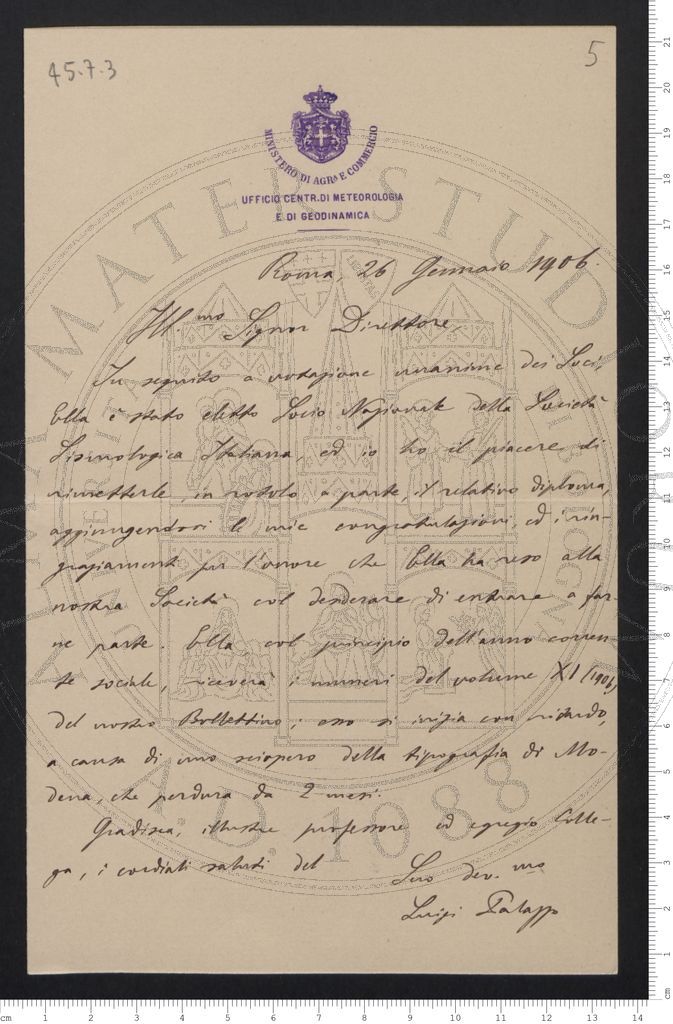 45.7.3
5
MINISTERO DI AGR.A E COMMERCIO
UFFICIO CENTR. DI METEOROLOGIA
E DI GEODINAMICA
Roma, 26 Gennaio 1906.
Ill.mo Signor Direttore,
In seguito a votazione unanime dei Soci,
Ella è stato eletto Socio Nazionale della Società
Sismologica Italiana, ed io ho il piacere di
rimetterle in rotolo a parte, il relativo diploma,
aggiungendovi le mie congratulazioni, ed i rin-
graziamenti per l'onore che Ella ha reso alla
nostra Società col desiderare di entrare a far-
ne parte. Ella, col principio dell'anno corren-
te sociale, riceverà i numeri del volume XI (1906)
del nostro Bollettino; esso si inizia con ritardo,
a causa di uno sciopero della tipografia di Mo-
dena, che perdura da 2 mesi.
Gradisca, illustre professore ed egregio Colle-
ga, i cordiali saluti del
Suo dev.mo
Luigi Palazzo
ALMA MATER STUDIORUM
A.D. 1088
LIBERTAS